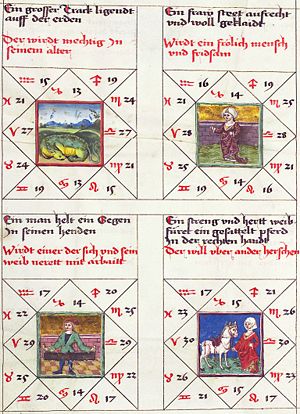 Ein grosser Track ligendt
auff der erden
Der wirdt mechtig In
seinem alter
♒ 15 ♑ 13 ♐ 19
♓ 21 ♏ 24
♈ 27 ♎ 27
♉ 24 ♍ 21
♊ 19 ♋ 13 ♌ 15
Ein fraw steet auffrecht
vnd woll geklaidt
Wirdt ein frölich mensch
vnd fridsam
♒ 16 ♑ 14 ♐ 20
♓ 21 ♏ 25
♈ 28 ♎ 28
♉ 25 ♍ 21
♊ 19 ♋ 14 ♌ 16
Ein man helt ein Segen
In seinen henden
Wirdt einer der sich vnd sein
weib nerett mit arbaitt
♒ 17 ♑ 14 ♐ 20
♓ 22 ♏ 25
♈ 29 ♎ 29
♉ 25 ♍ 22
♊ 20 ♋ 14 ♌ 17
Ein streng vnd hertt weib
füret ein gesattelt pferd
In der rechten handt
Der will vber ander herschen
♒ 17 ♑ 15 ♐ 21
♓ 23 ♏ 26
♈ 30 ♎ 30
♉ 26 ♍ 23
♊ 21 ♋ 15 ♌ 17